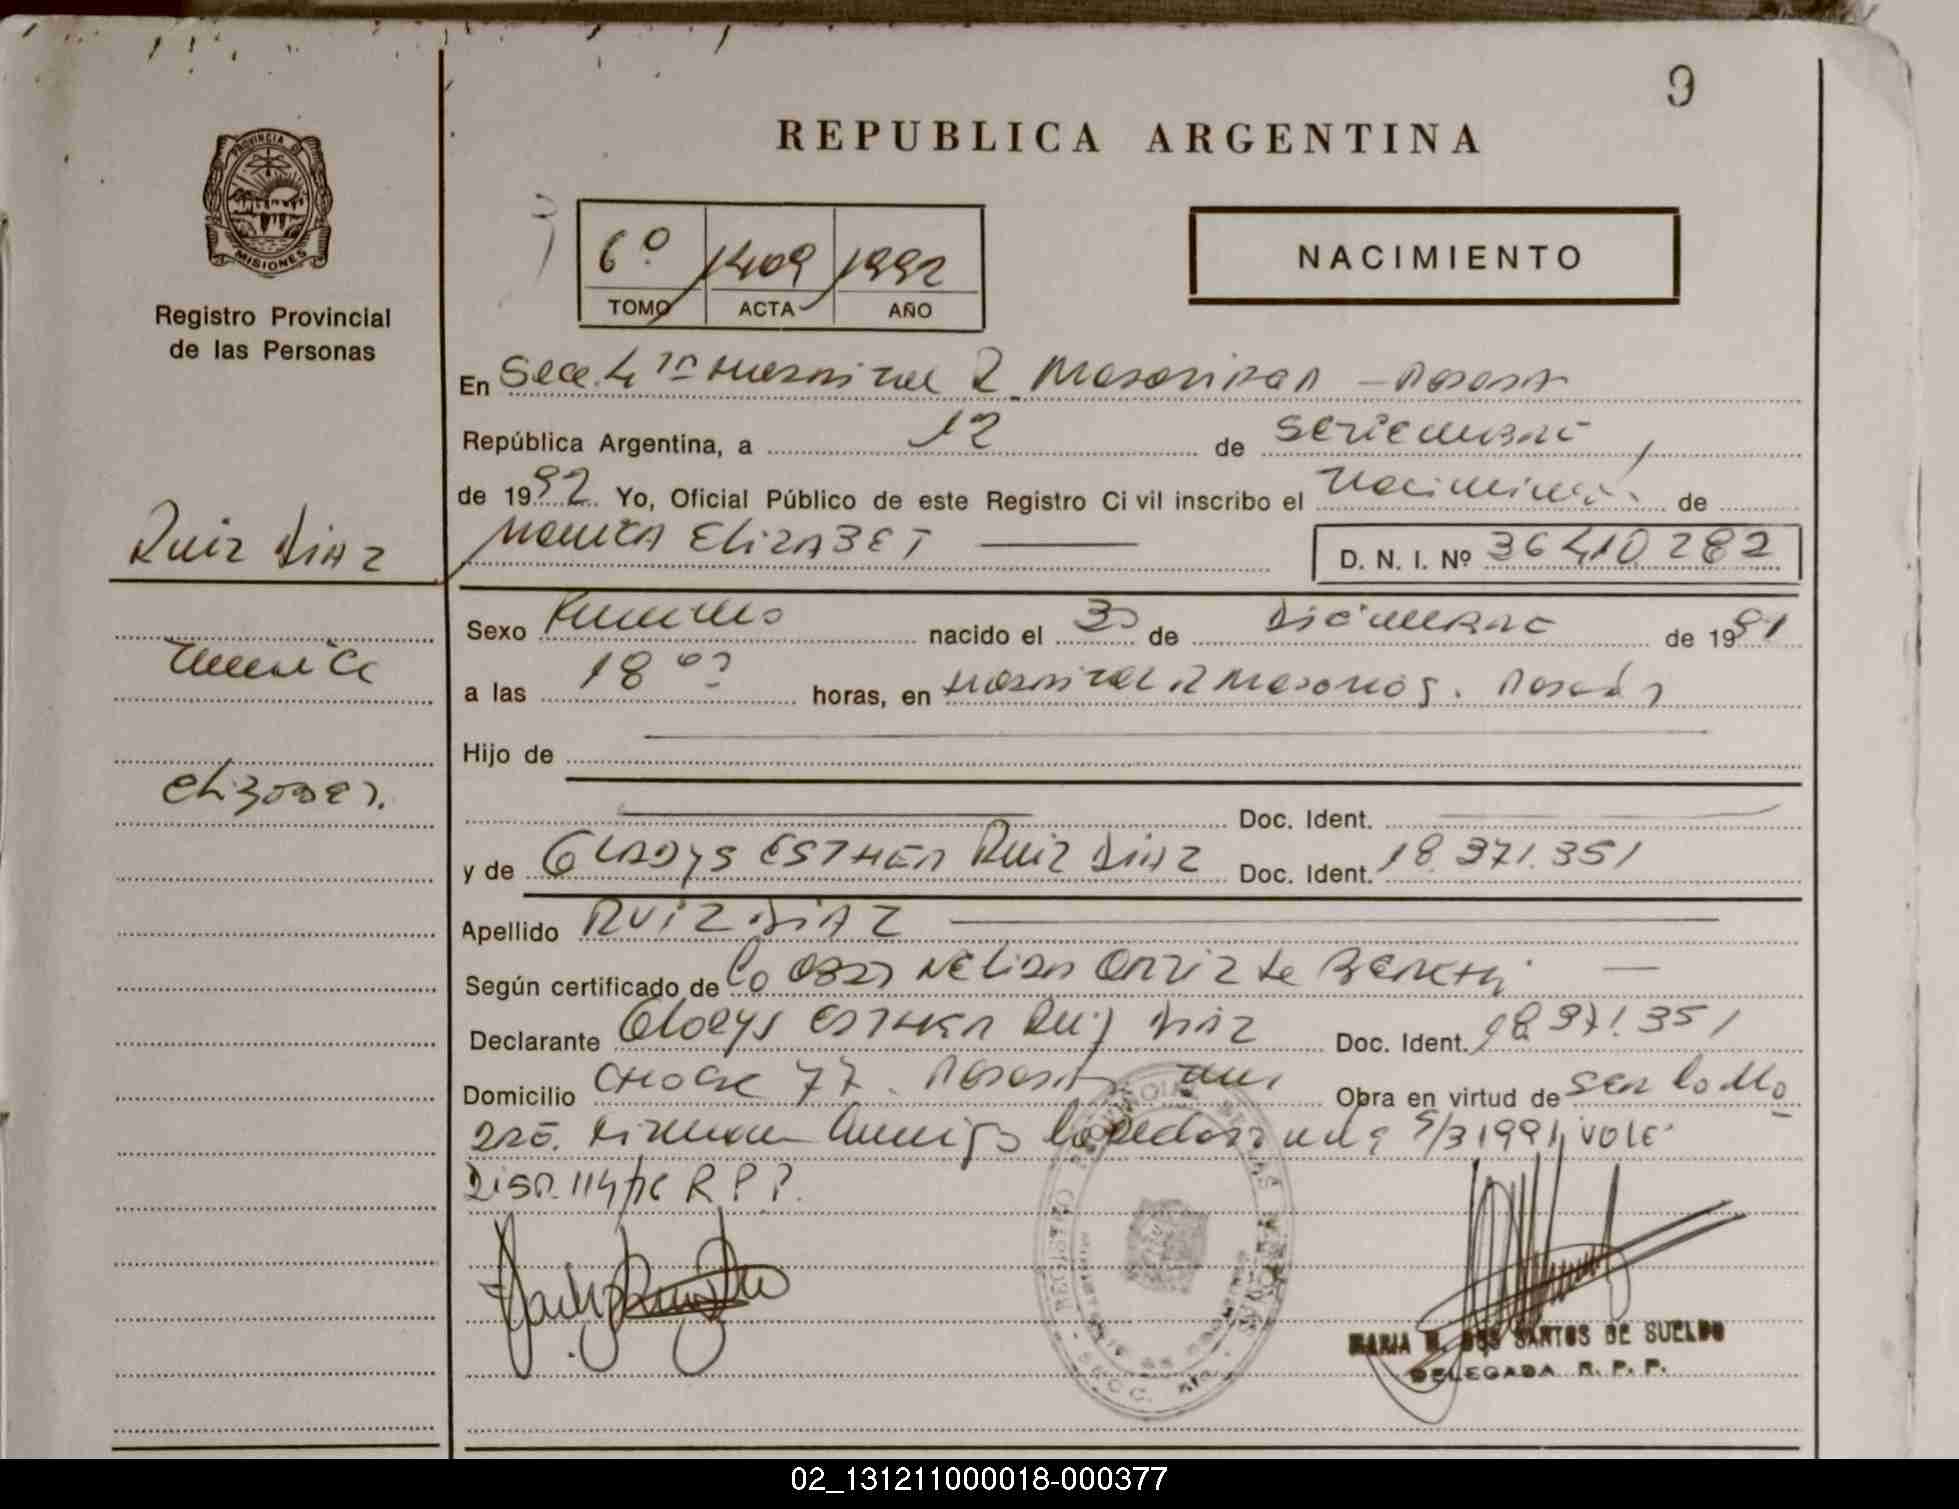 9
REPUBLICA ARGENTINA
PROVINCIA DE
MISIONES
Registro Provincial
de las Personas
6º 1409 1992
TOMO ACTA AÑO
NACIMIENTO
En Secc. 4 Hospital R
República Argentina, a 12 de Setiembre
de 1992 Yo, Oficial Público de este Registro Civil inscribo el Nacimiento de
Ruiz Diaz
Monica ELIZABET D. N. I. Nº 36410282
Sexo nacido el 30 de Diciembre de 1991
Monica
a las 18 horas, en Hospital R Posadas
Hijo de
Elizabet.
Doc. Ident.
y de GLADYS ESTHER Ruiz Diaz Doc. Ident. 18.371.351
Apellido RUIZ DIAZ
Según certificado de la Obst Nelida Ortiz de
Declarante Gladys ESTHER Ruiz Diaz Doc. Ident. 18.371.351
Domicilio 77 Posadas Obra en virtud de
5/3 1991, vale
Disp. 114/ R P P.
MARIA DOS SANTOS DE SUELDO
DELEGADA R. P. P.
02_131211000018-000377